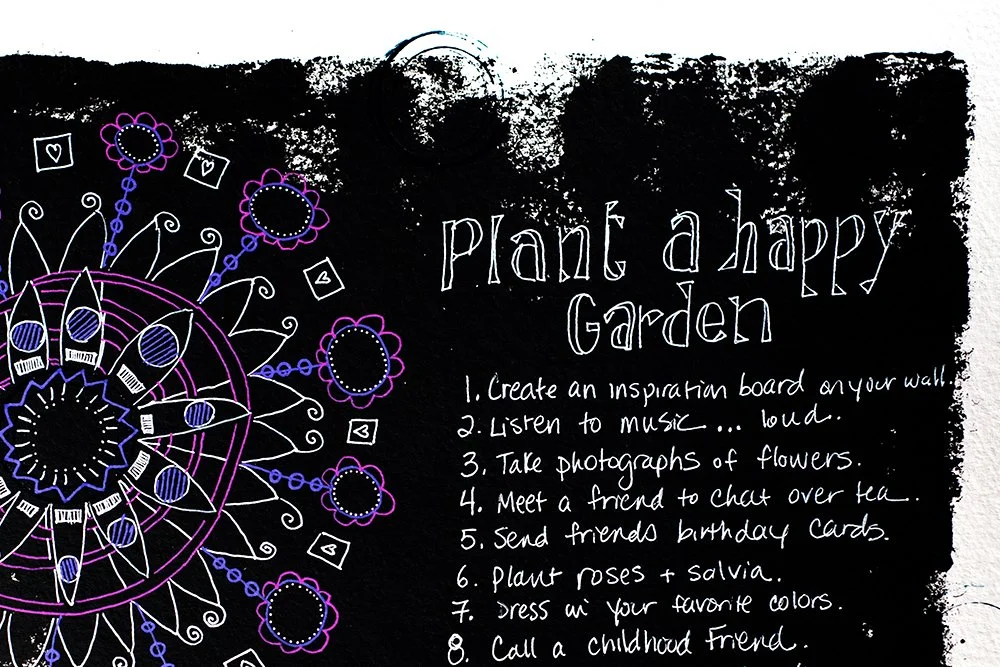 Plant a happy
Garden
1. Create an inspiration board on your wall.
2. Listen to music... loud.
3. Take photographs of flowers.
4. Meet a friend to chat over tea.
5. Send friends birthday cards.
6. Plant roses + salvia.
7. Dress in your favorite colors.
8. Call a childhood friend.